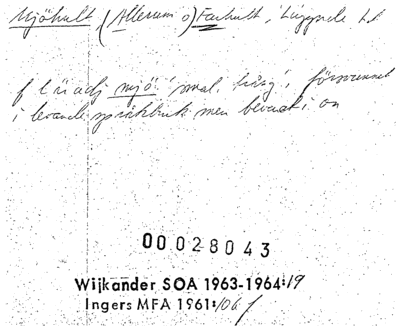 Mjöhult (Allerum o) Farhult, Luggude hd
f lö adj mjö 'smal, trång', försvunnet
i levande språkbruk men bevarat i on
00028043
Wijkander SOA 1963-1964:19
Ingers MFA 1961:106 f